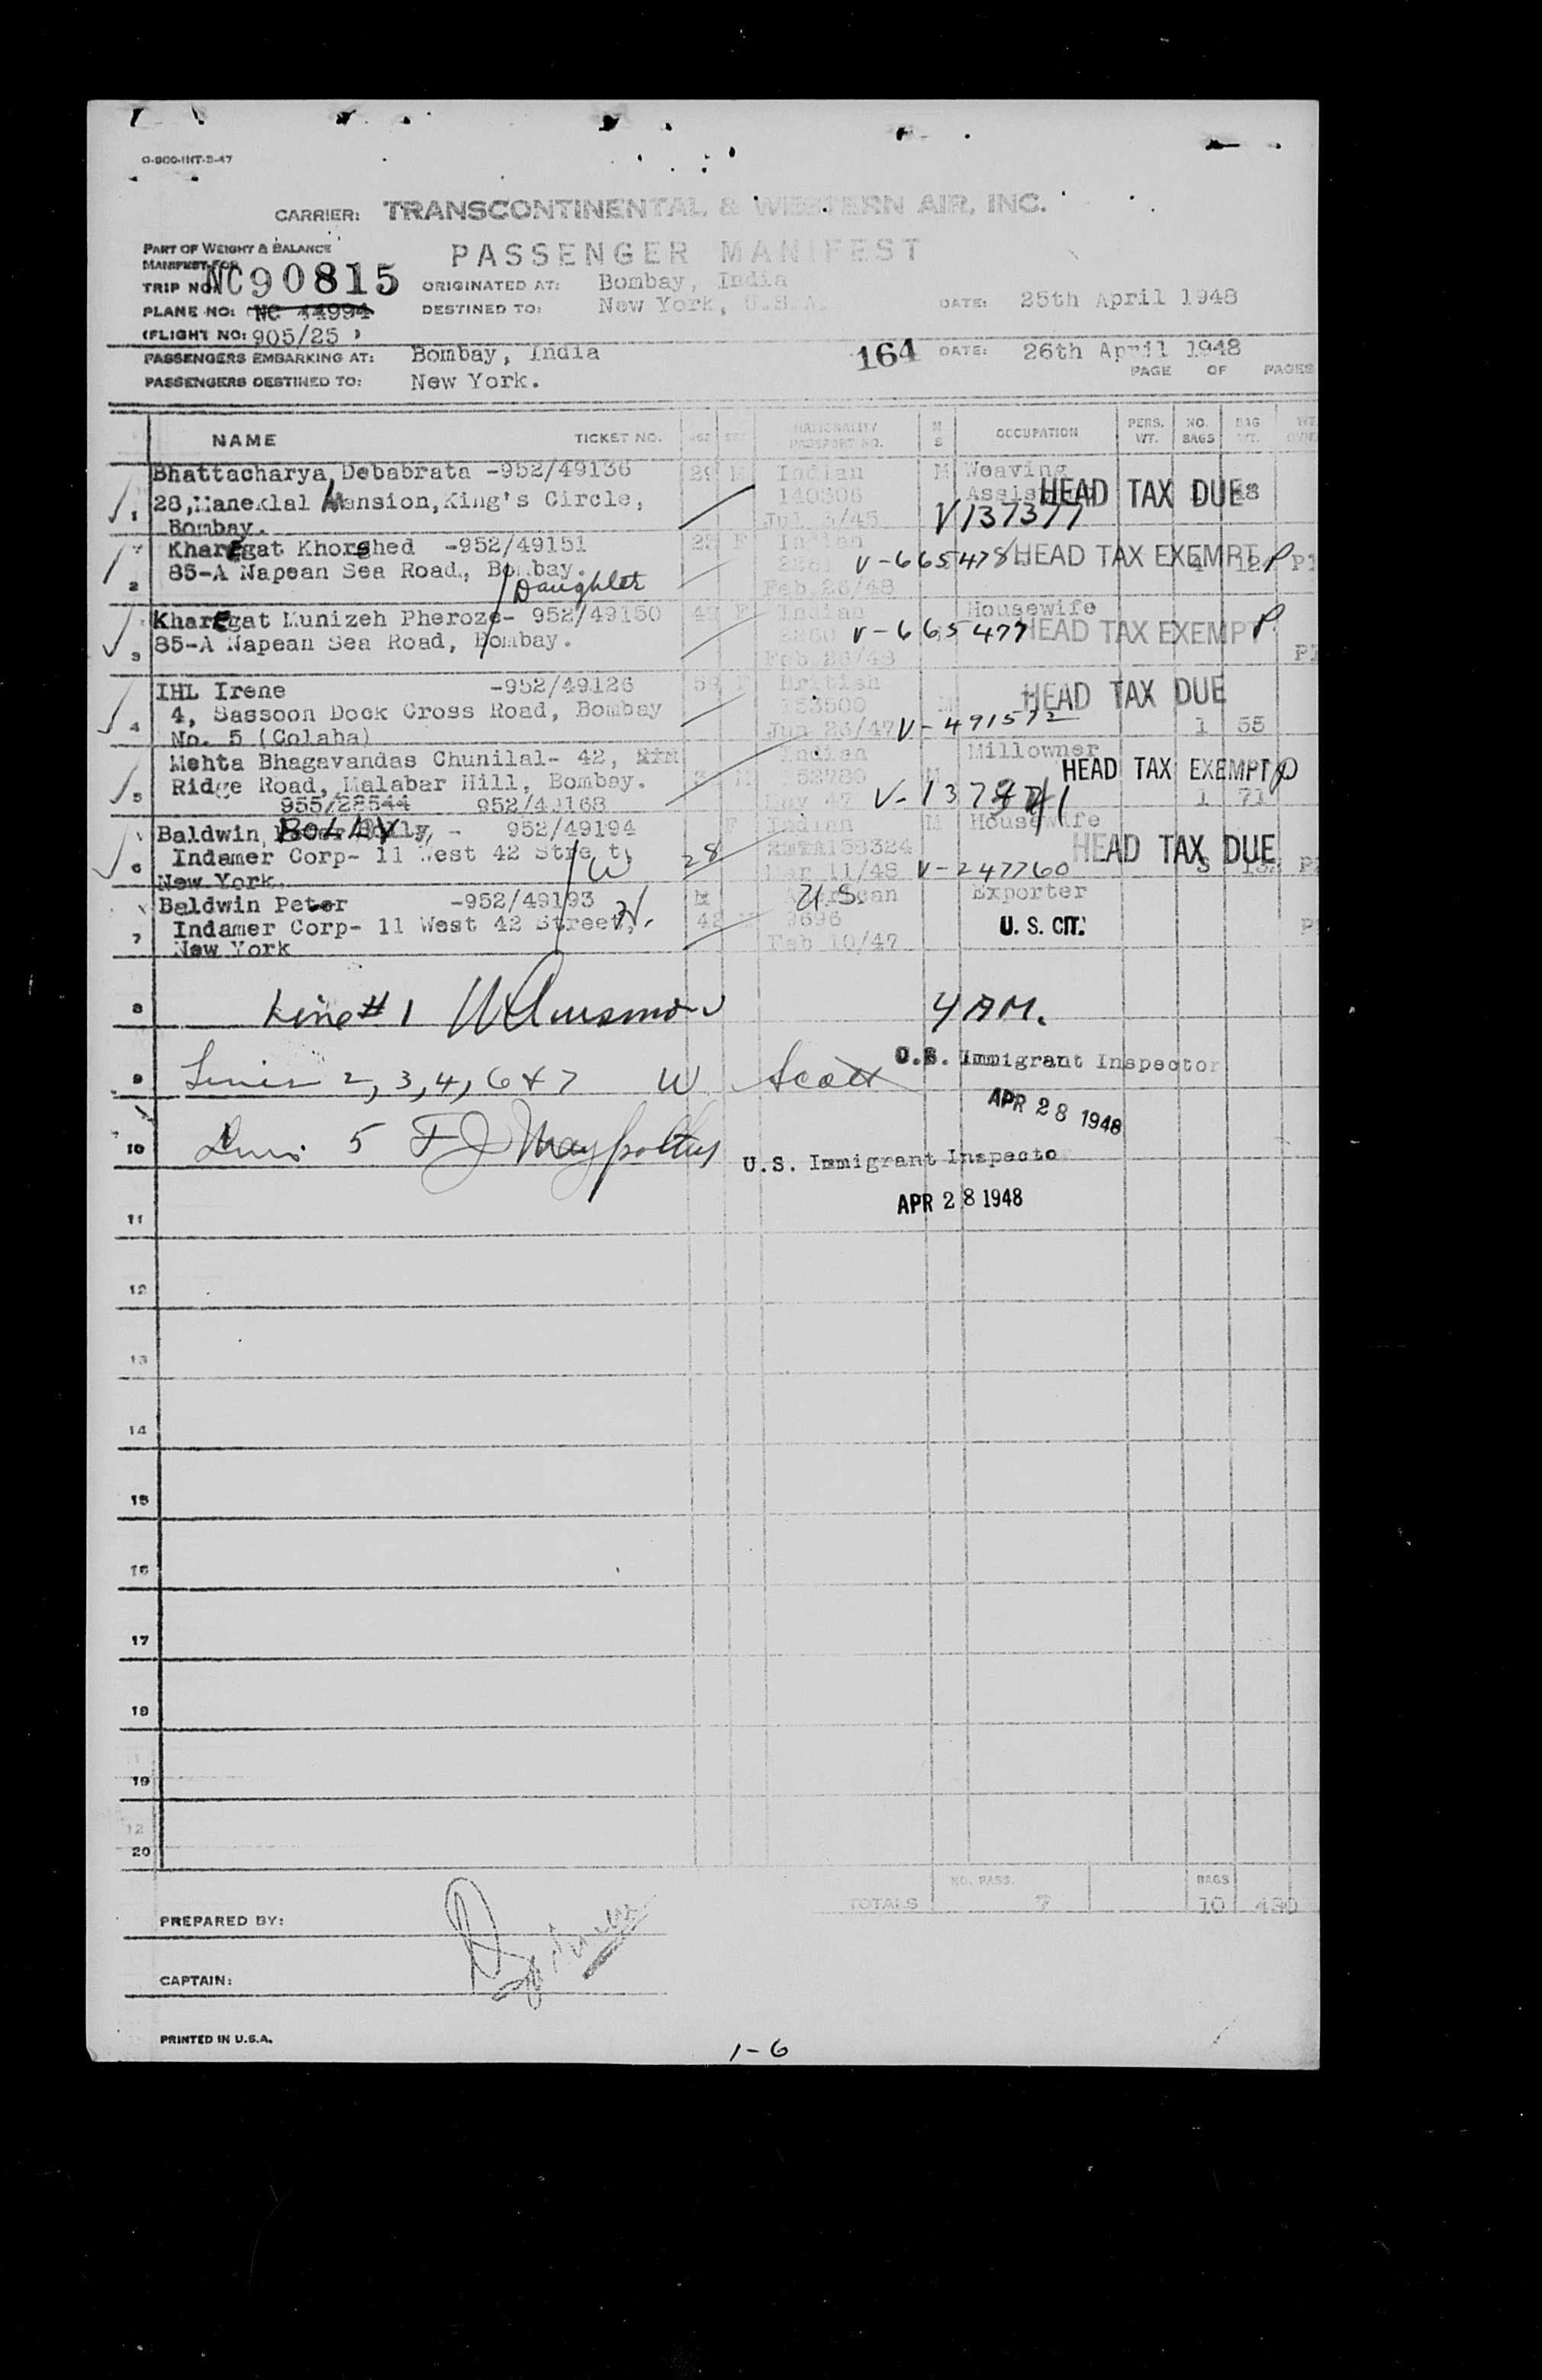 O-900-INT-3-47
CARRIER: TRANSCONTINENTAL & WESTERN AIR, INC.
PART OF WEIGHT & BALANCE
MANIFEST FOR
PASSENGER MANIFEST
TRIP NO. NC90815
ORIGINATED AT: Bombay, India
PLANE NO: NC 44994
DESTINED TO: New York, U.S.A.
DATE: 25th April 1948
(FLIGHT NO: 905/25 )
PASSENGERS EMBARKING AT: Bombay, India
164 DATE: 26th April 1948
PASSENGERS DESTINED TO: New York.
PAGE OF PAGES
NAME TICKET NO. AGE SEX NATIONALITY PASSPORT NO. M S OCCUPATION PERS. WT. NO. BAGS BAG WT.
Bhattacharya, Debabrata -952/49136 29 M Indian M Weaving
28, Maneklal Mansion, King's Circle, 140306 HEAD TAX DUE
1 Bombay. Jul 3/45 V137377
KharEgat Khorshed -952/49151 Indian
85-A Napean Sea Road, Bombay. V-665478 HEAD TAX EXEMPT P
2 Daughter Feb 26/48
KharEgat Munizeh Pheroze- 952/49150 F Indian Housewife
3 85-A Napean Sea Road, Bombay. V-665477 HEAD TAX EXEMPT P
Feb 26/48
IHL Irene -952/49126 F British HEAD TAX DUE
4, Sassoon Dock Cross Road, Bombay 153500 M
4 No. 5 (Colaba) Jun 26/47 V-491572 1 55
Mehta Bhagavandas Chunilal- 42, Indian Millowner
Ridge Road, Malabar Hill, Bombay. M M HEAD TAX EXEMPT P
5 955/28544 952/49168 May 47 1 71
Baldwin, BOLLY - 952/49194 F Indian M Housewife
Indamer Corp- 11 West 42 Street, W 28 HEAD TAX DUE
6 New York. Mar 11/48 V-247760
Baldwin Peter -952/49193 U.S. American Exporter
Indamer Corp- 11 West 42 Street, H. 42 M 9696 U. S. CIT.
7 New York Feb 10/47
8 Line # 1 4 AM.
U.S. Immigrant Inspector
9 Lines 2, 3, 4, 6 & 7 W Scott
APR 28 1948
10 Line 5
U.S. Immigrant Inspecto
APR 28 1948
11
12
13
14
15
16
17
18
19
12
20
NO. PASS. BAGS
TOTALS 7 10 430
PREPARED BY:
CAPTAIN:
PRINTED IN U.S.A.
1-6